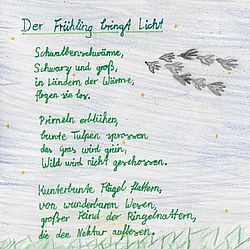 Der Frühling bringt Licht
Schwalbenschwärme,
Schwarz und groß,
in Ländern der Wärme,
flogen sie los.
Primeln erblühen,
bunte Tulpen sprossen
das gras wird grün,
Wild wird nicht geschossen.
Kunterbunte Flügel flattern,
von wunderbaren Wesen,
großer Feind der Ringelnattern,
die den Nektar auflesen.